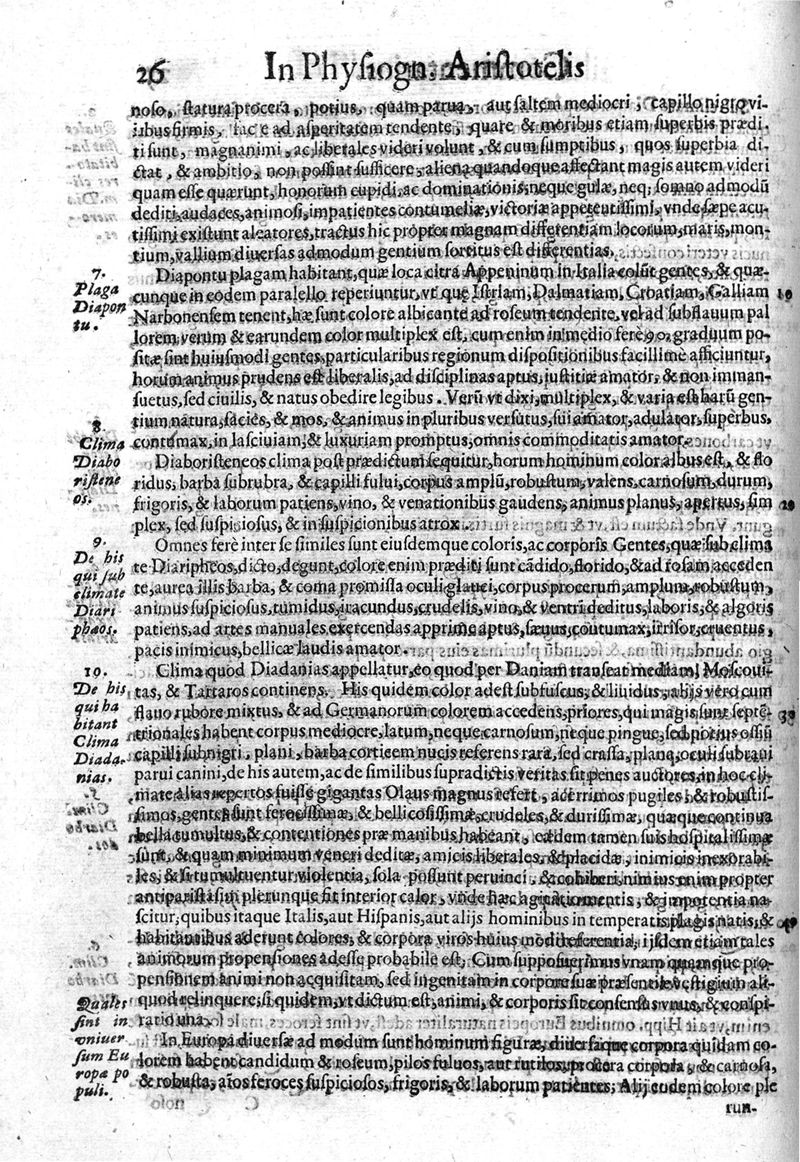 26 In Physiogn. Aristotelis
noso, statura procera, potius, quam parua, aut saltem mediocri, capillo nigro vi-
ribus firmis, facie ad asperitatem tendente, quare & moribus etiam superbis prædi-
ti sunt, magnanimi, ac liberales videri volunt, & cum sumptibus, quos superbia di-
ctat, & ambitio, non possint sufficere, aliena quandoque affectant magis autem videri
quam esse quærunt, honorum cupidi, ac dominationis, neque gulæ, neq; somno admodũ
dediti, audaces, animosi, impatientes contumeliæ, victoriæ appetentissimi, vnde sæpe acu-
tissimi existunt aleatores, tractus hic propter magnam differentiam locorum, maris, mon-
tium, vallium diuersas admodum gentium sortitus est differentias.
7.
Plaga
Diapon
tu.
Diapontu plagam habitant, quæ loca citra Appeninum in Italia colũt gentes, & quæ-
cunque in eodem parallelo reperiuntur, vt que Istriam, Dalmatiam, Croatiam, Galliam 10
Narbonensem tenent, hæ sunt colore albicante ad roseum tendente, vel ad subflauum pal
lorem, verum & earundem color multiplex est, cum enim in medio ferè 90. graduum po-
sitæ sint huiusmodi gentes, particularibus regionum dispositionibus facillimè afficiuntur,
horum animus prudens est liberalis, ad disciplinas aptus, iustitiæ amator, & non imman-
suetus, sed ciuilis, & natus obedire legibus. Verũ vt dixi, multiplex, & varia est harũ gen-
tium natura, facies, & mos, & animus in pluribus versutus, sui amator, adulator, superbus,
contumax, in lasciuiam, & luxuriam promptus, omnis commoditatis amator.
8.
Clima
Diabo
ristene
os.
Diaboristeneos clima post prædictum sequitur, horum hominum color albus est, & flo
ridus, barba subrubra, & capilli fului, corpus amplũ, robustum, valens, carnosum, durum,
frigoris, & laborum patiens, vino, & venationibus gaudens, animus planus, apertus, sim 20
plex, sed suspiciosus, & in suspicionibus atrox.
9.
De his
qui sub
climate
Diari
phæos.
Omnes ferè inter se similes sunt eiusdemque coloris, ac corporis Gentes, quæ sub clima
te Diaripheos, dicto, degunt, colore enim præditi sunt cãdido, florido, & ad rosam acceden
te, aurea illis barba, & coma promissa oculi glauci, corpus procerum, amplum, robustum,
animus suspiciosus, tumidus, iracundus, crudelis, vino, & ventri deditus, laboris, & algoris
patiens, ad artes manuales exercendas apprime aptus, sæuus, contumax, irrisor, cruentus,
pacis inimicus, bellicæ laudis amator.
10.
De his
qui ha
bitant
Clima
Diada-
nias.
Clima quod Diadanias appellatur, eo quod per Daniam transeat mediam, Moscoui-
tas, & Tartaros continens. His quidem color adest subfuscus, & liuidus, alijs vero cum
flauo rubore mixtus, & ad Germanorum colorem accedens, priores, qui magis sunt septẽ- 30
trionales habent corpus mediocre, latum, neque carnosum, neque pingue, sed potius ossiũ
capilli subnigri, plani, barba corticem nucis referens rara, sed crassa, plana, oculi subrani
parui canini, de his autem, ac de similibus supradictis veritas sit penes auctores, in hoc cli-
mate alias repertos fuisse gigantas Olaus magnus refert, acerrimos pugiles, & robustis-
simos, gentes sunt ferocissimæ, & bellicosissimæ, crudeles, & durissimæ, quæque continua
bella tumultus, & contentiones præ manibus habeant, eædem tamen suis hospitalissimæ
sunt, & quam minimum veneri deditæ, amicis liberales, & placidæ, inimicis inexorabi-
les, & si tumultuentur violentia, sola possunt peruinci, & cohiberi, nimius enim propter
antiparistasim plerunque fit interior calor, vnde hæc agitatio mentis, & impotentia na-
scitur, quibus itaque Italis, aut Hispanis, aut alijs hominibus in temperatis plagis natis, & 40
habitantibus aderunt colores, & corpora viros huius modi referentia, ijsdem etiam tales
animorum propensiones adesse probabile est. Cum supposuerimus vnam quamque pro-
pensionem animi non acquisitam, sed ingenitam in corpore suæ præsentiæ vestigium ali-
quod relinquere; si quidem, vt dictum est, animi, & corporis sit consensus vnus, & conspi-
ratio vna.
Quales
sint in
vniuer
sum Eu
ropæ po
puli.
In Europa diuersæ ad modum sunt hominum figuræ, diuersaque corpora quidam co-
lorem habent candidum & roseum, pilos fuluos, aut rutilos, procera corpora, & carnosa,
& robusta, aĩos feroces suspiciosos, frigoris, & laborum patientes; Alij eodem colore ple
run-